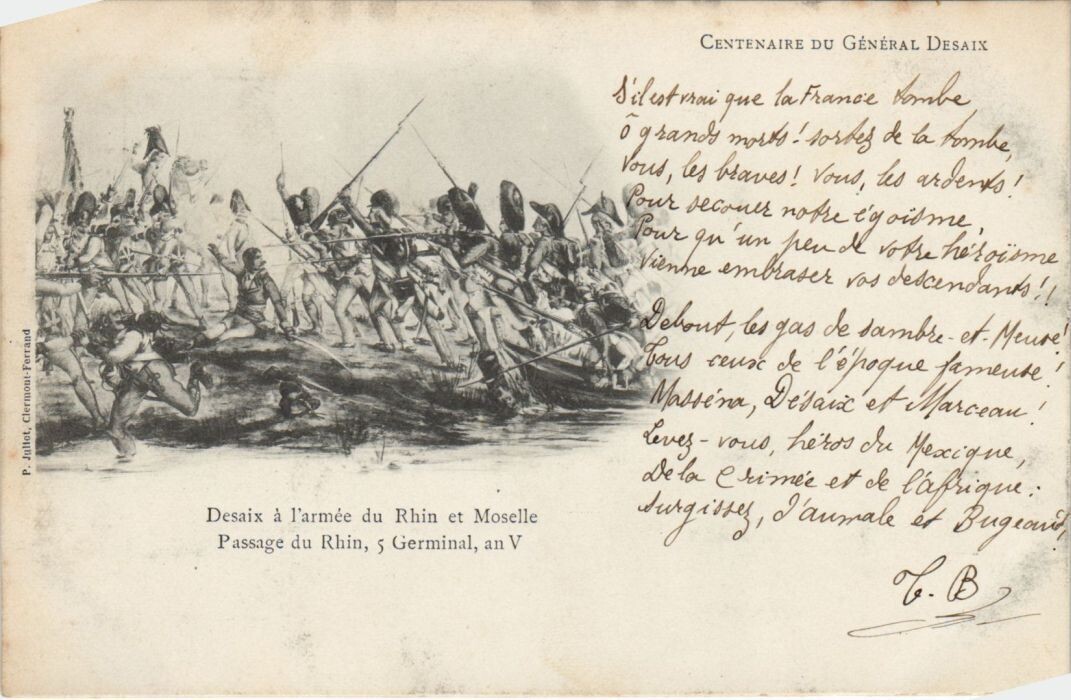 CENTENAIRE DU GÉNÉRAL DESAIX
S'il est vrai que la France tombe,
ô grands morts! sortez de la tombe,
vous, les braves! vous, les ardents!
Pour secouer notre égoïsme,
Pour qu'un peu de votre héroïsme
vienne embraser vos descendants!!
Debout les gas de sambre-et-Meuse!
Tous ceux de l'époque fameuse!
Masséna, Désaix et Marceau!
Levez-vous, héros du Mexique,
De la Crimée et de l'Afrique:
surgissez, d'aumale et Bugeaud,
T. B
P. Juliot, Clermont-Ferrand
Desaix à l'armée du Rhin et Moselle
Passage du Rhin, 5 Germinal, an V